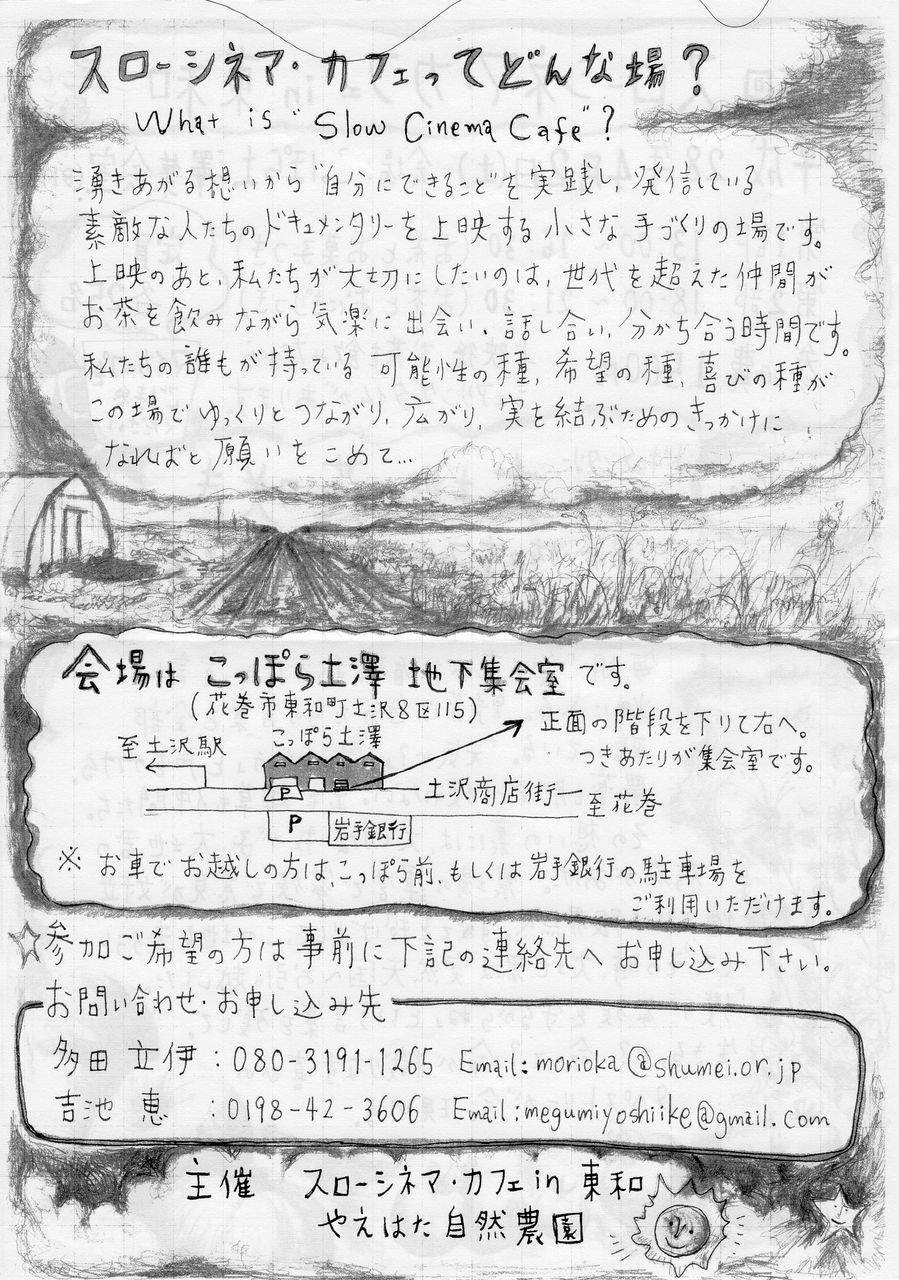 スローシネマ・カフェってどんな場?
What is "Slow Cinema Cafe"?
湧きあがる想いから"自分にできること"を実践し、発信している
素敵な人たちのドキュメンタリーを上映する小さな手づくりの場です。
上映のあと、私たちが大切にしたいのは、世代を超えた仲間が
お茶を飲みながら気楽に出会い、話し合い、分かち合う時間です。
私たちの誰もが持っている可能性の種、希望の種、喜びの種が
この場でゆっくりとつながり、広がり、実を結ぶためのきっかけに
なればと願いをこめて…
会場は こっぽら土澤 地下集会室 です。
(花巻市東和町土沢8区115)
正面の階段を下りて右へ。
つきあたりが集会室です。
至土沢駅
こっぽら土澤
P
土沢商店街
至花巻
P
岩手銀行
※ お車でお越しの方は、こっぽら前、もしくは岩手銀行の駐車場を
ご利用いただけます。
☆参加ご希望の方は事前に下記の連絡先へお申し込み下さい。
お問い合わせ・お申し込み先
多田 立伊:080-3191-1265 Email:morioka@shumei.or.jp
吉池 恵 :0198-42-3606 Email:megumiyoshiike@gmail.com
主催 スローシネマ・カフェin東和
やえはた自然農園